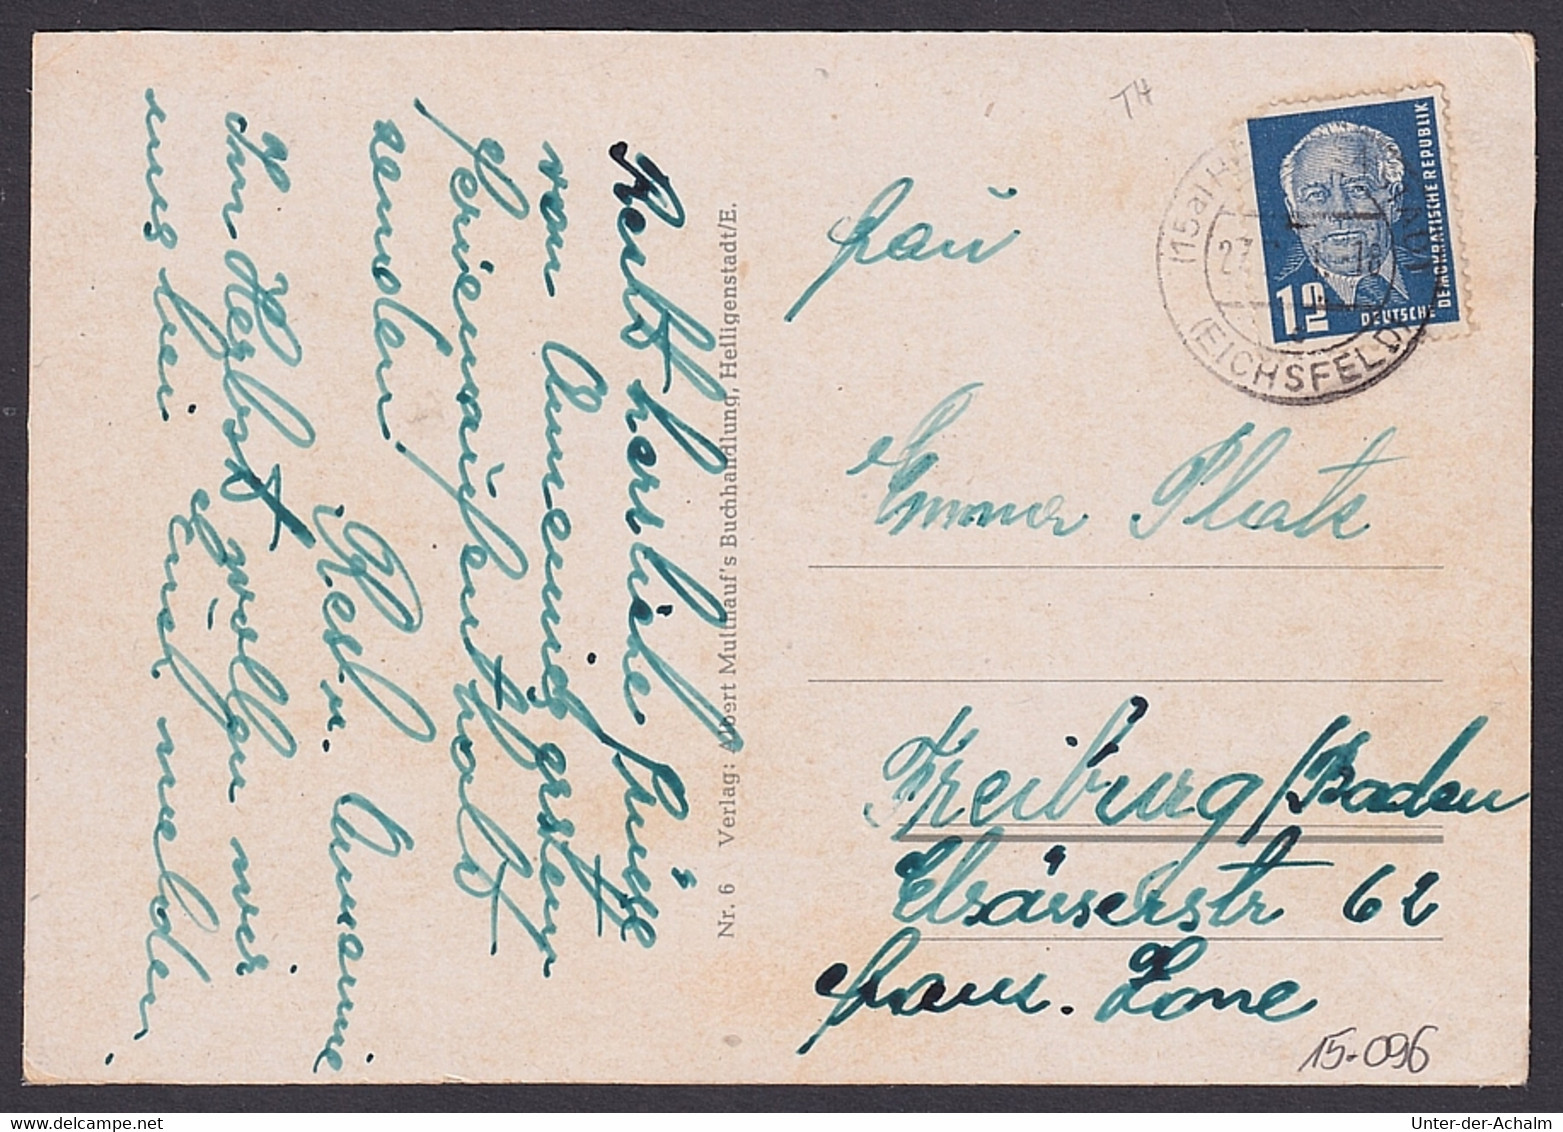 Recht herzliche Grüsse
von unserem ersten
Ferienaufenthalt
senden
Resl u. Annemie
Im Herbst wollen wir
uns bei Euch melden.
Nr. 6 Verlag: Albert Multhauf's Buchhandlung, Heiligenstadt/E.
TH
(15a) HEILIGENSTADT
27.
(EICHSFELD)
12
DEUTSCHE DEMOKRATISCHE REPUBLIK
Frau
Emmer
Freiburg/Baden
Elsässerstr 62
franz. Zone
15-096
Unter-der-Achalm